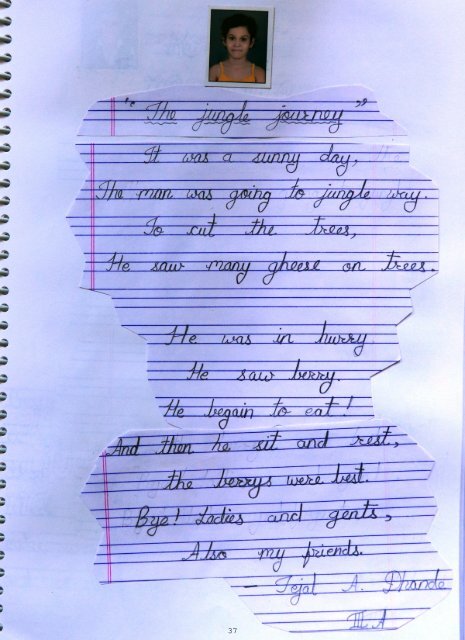 "The jungle journey"
It was a sunny day,
The man was going to jungle way.
To cut the trees,
He saw many gheese on trees.
He was in hurry
He saw berry.
He begain to eat!
And then he sit and rest,
the berrys were best.
Bye! Ladies and gents,
Also my friends.
- Tejal A. Dhande
III A
37